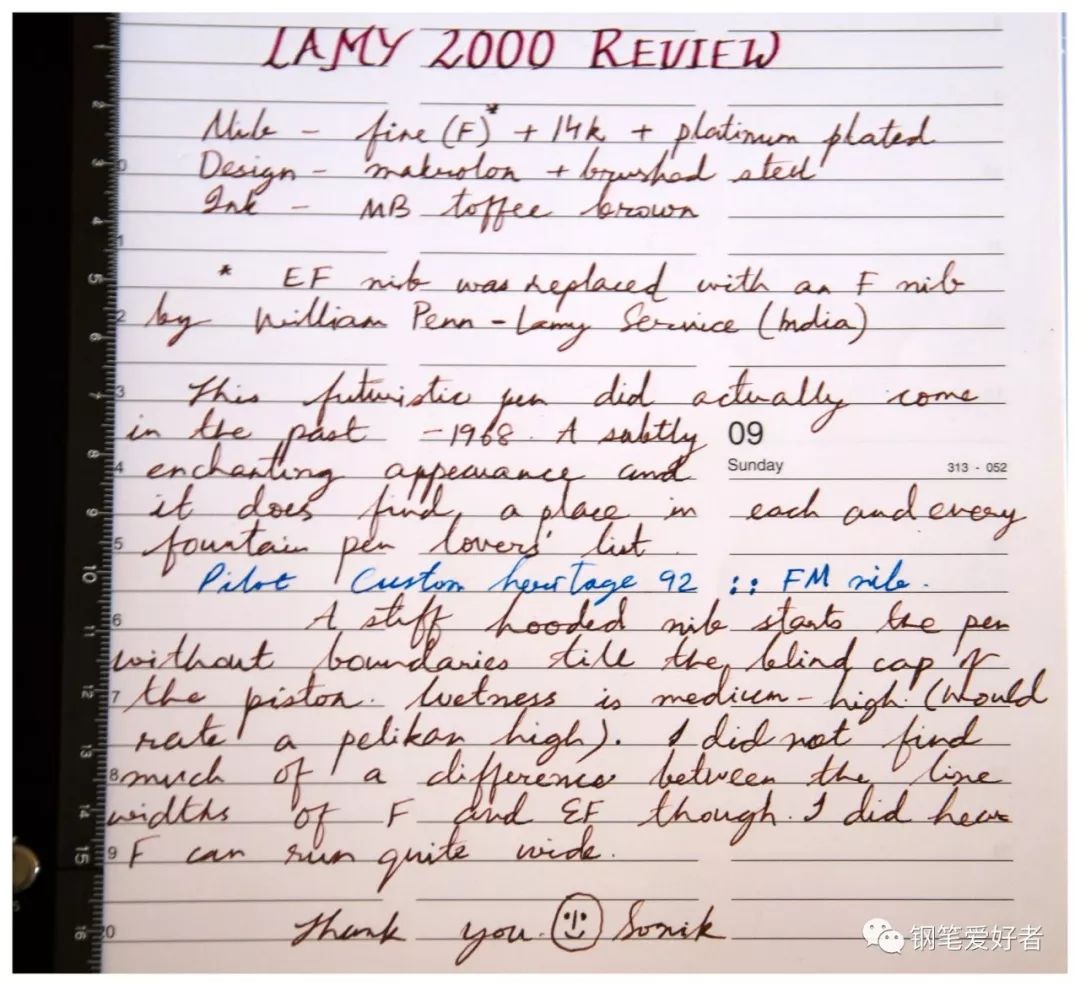 LAMY 2000 REVIEW
Nib - fine (F)* + 14k + platinum plated
Design - makrolon + brushed steel
Ink - MB toffee brown
* EF nib was replaced with an F nib
by William Penn - Lamy Service (India)
This futuristic pen did actually come
in the past - 1968. A subtly
09
Sunday
313 - 052
enchanting appearance and
it does find, a place in each and every
fountain pen lovers' list.
Pilot Custom heritage 92 :: FM nib.
A stiff hooded nib starts the pen
without boundaries till the blind cap of
the piston. Wetness is medium - high. (Would
rate a pelikan high). I did not find
much of a difference between the line
widths of F and EF though. I did hear
F can run quite wide.
Thank you. Sonik
钢笔爱好者